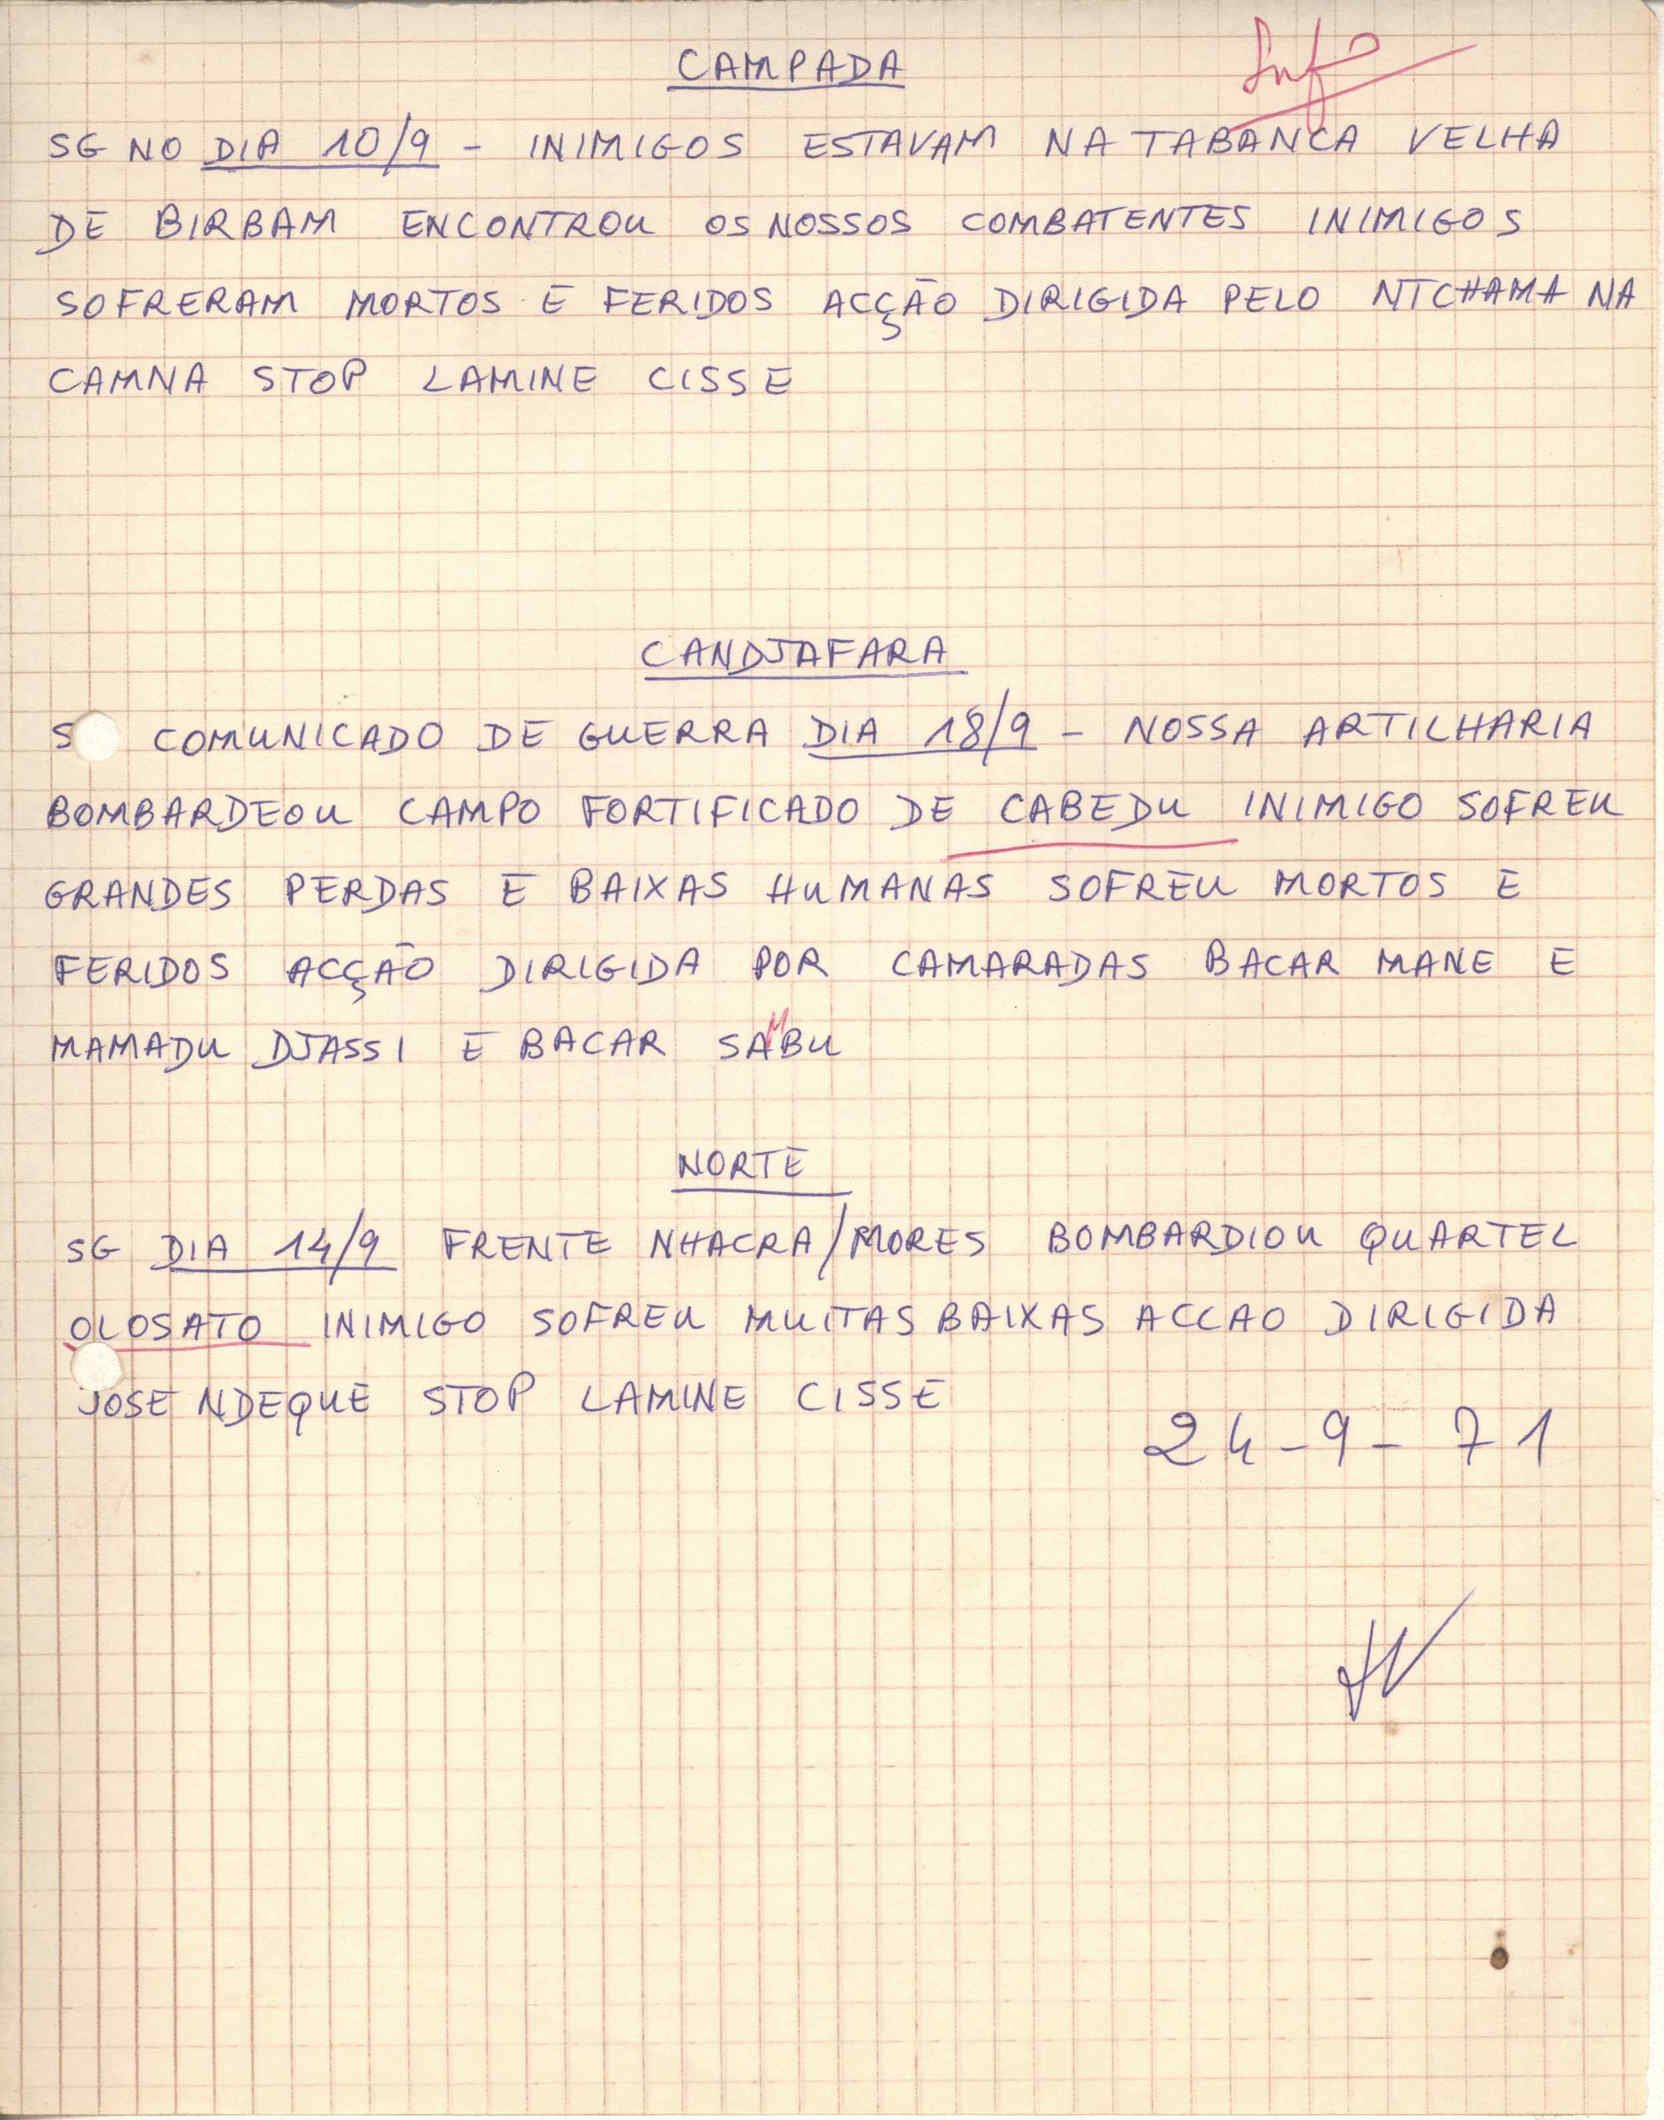 CAMPADA
SG NO DIA 10/9 - INIMIGOS ESTAVAM NA TABANCA VELHA
DE BIRBAM ENCONTROU OS NOSSOS COMBATENTES INIMIGOS
SOFRERAM MORTOS E FERIDOS ACÇÃO DIRIGIDA PELO NTCHAMA NA
CAMNA STOP LAMINE CISSE
CANDJAFARA
S COMUNICADO DE GUERRA DIA 18/9 - NOSSA ARTILHARIA
BOMBARDEOU CAMPO FORTIFICADO DE CABEDU INIMIGO SOFREU
GRANDES PERDAS E BAIXAS HUMANAS SOFREU MORTOS E
FERIDOS ACÇÃO DIRIGIDA POR CAMARADAS BACAR MANE E
MAMADU DJASSI E BACAR SAMBU
NORTE
SG DIA 14/9 FRENTE NHACRA/MORES BOMBARDIOU QUARTEL
OLOSATO INIMIGO SOFREU MUITAS BAIXAS ACCAO DIRIGIDA
JOSE NDEQUE STOP LAMINE CISSE
24-9-71